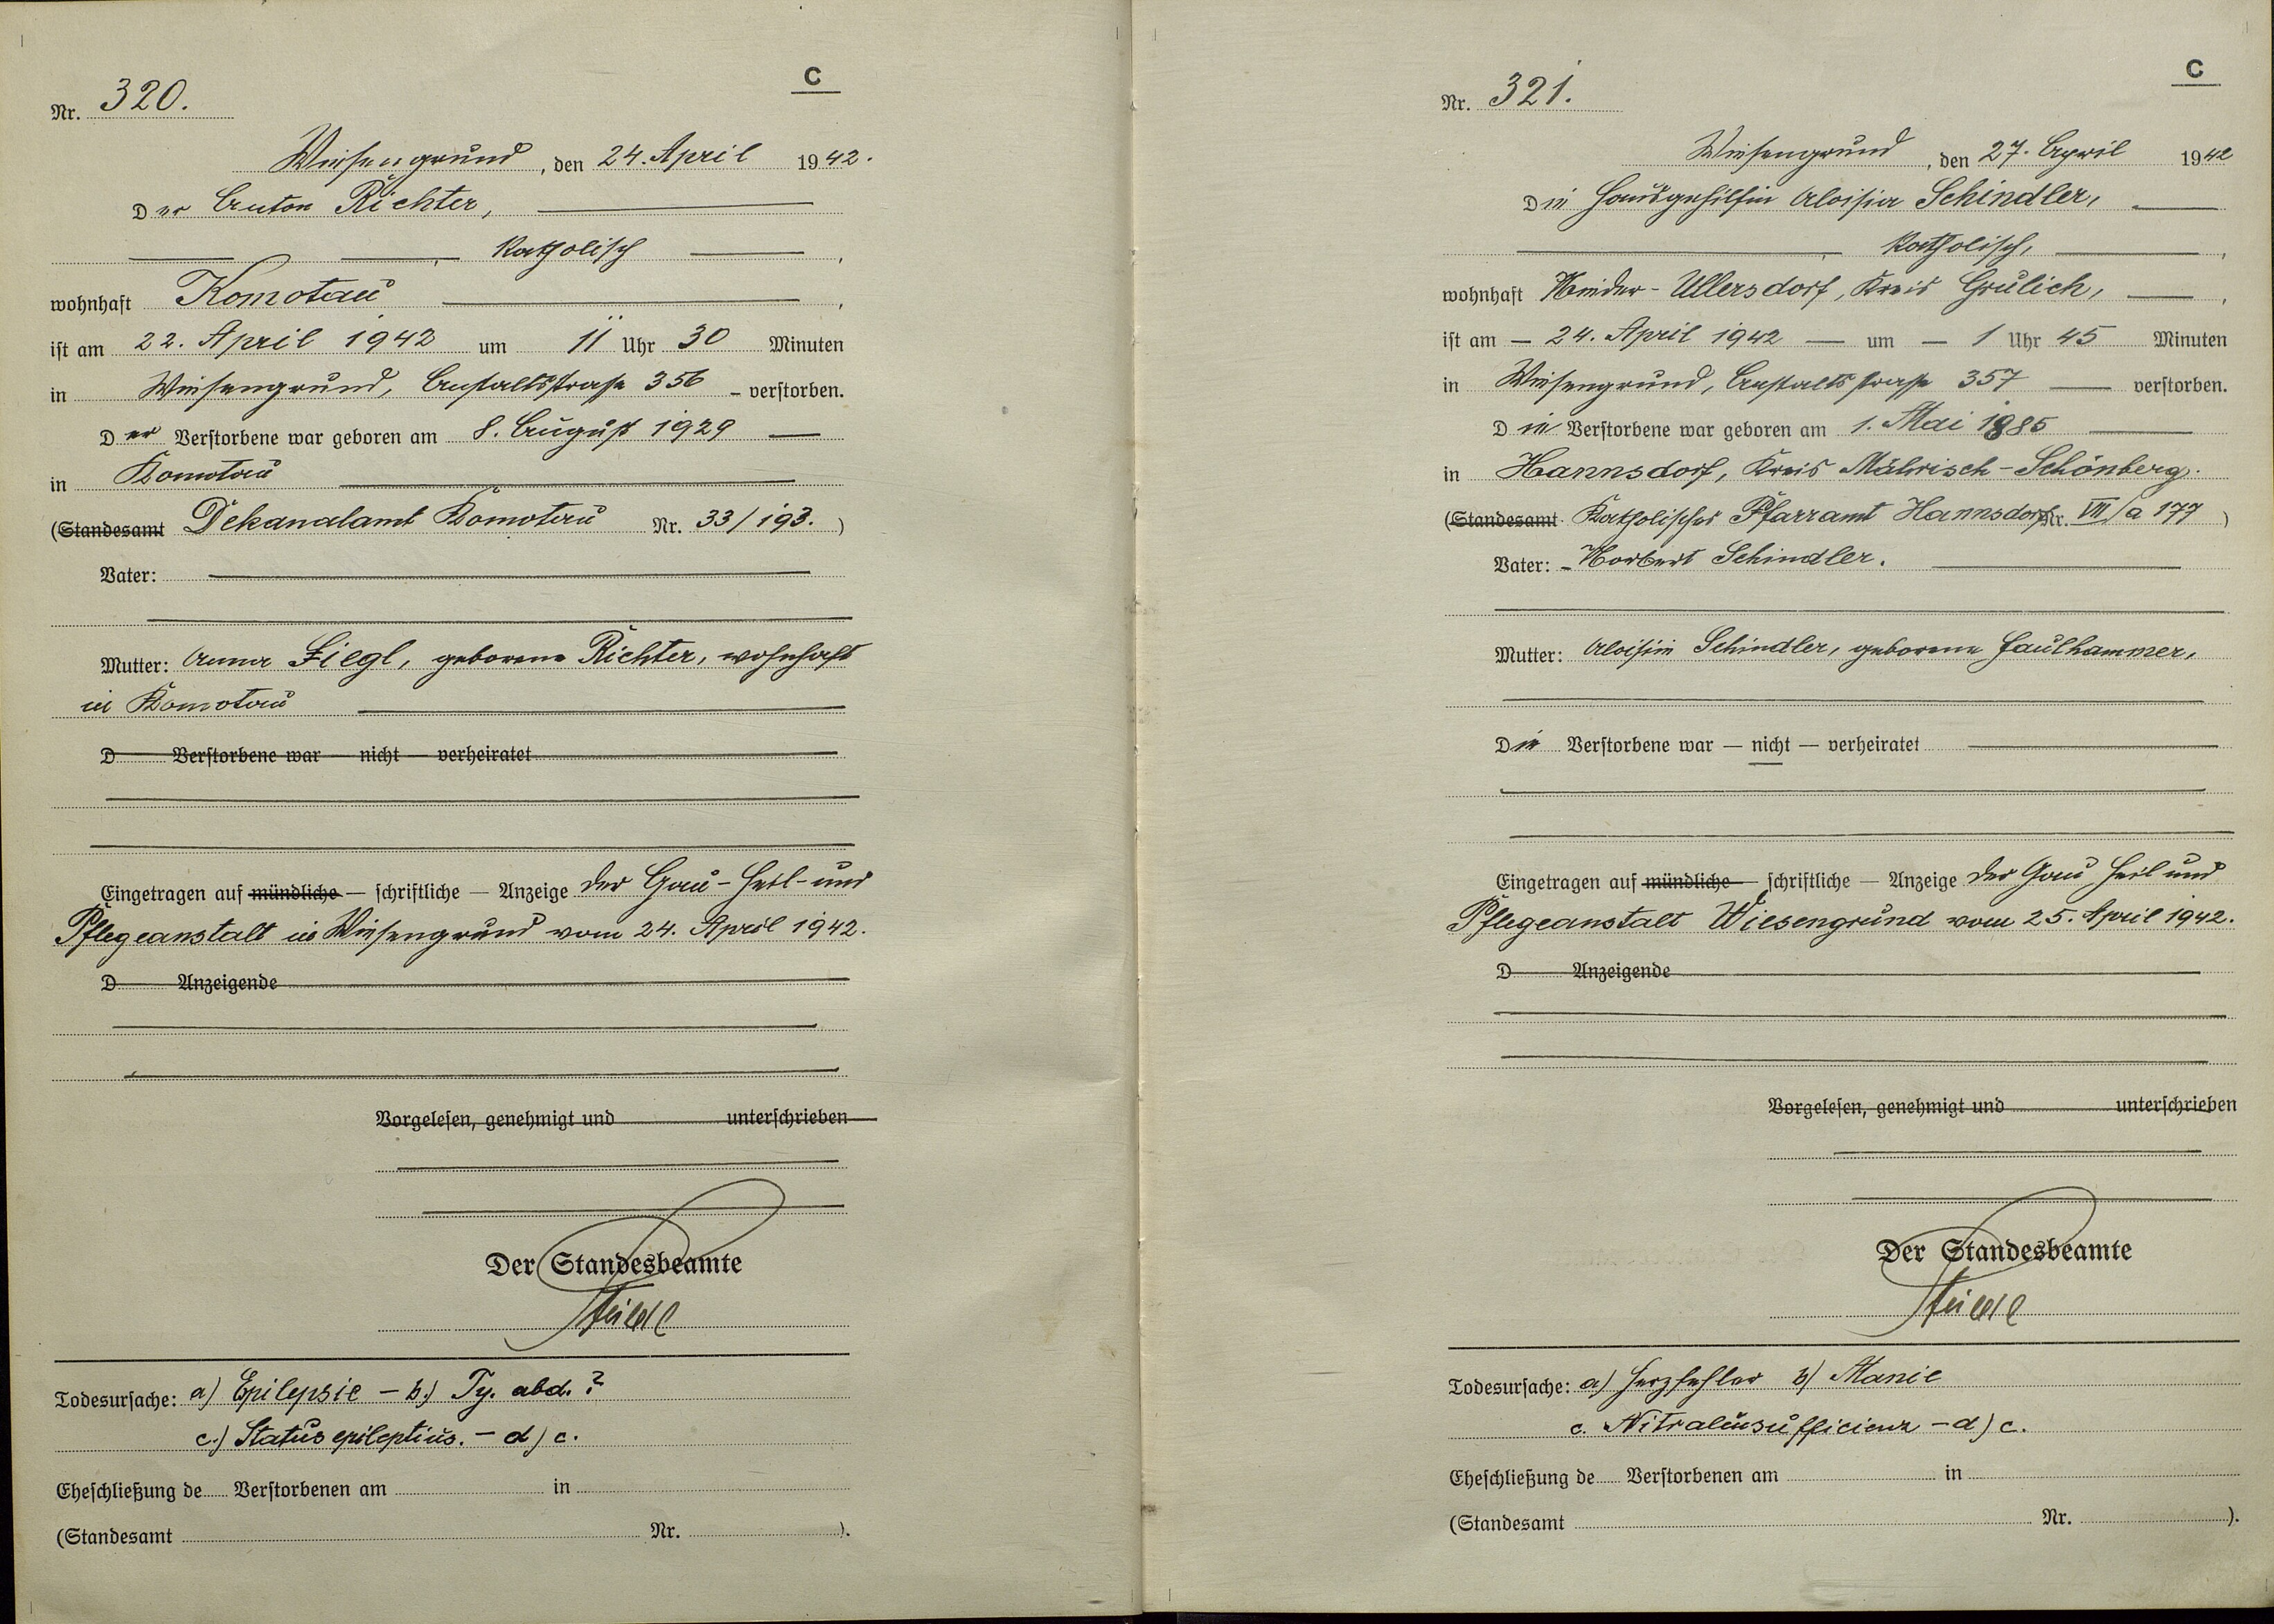 C
Nr. 320.
Wiesengrund, den 24. April 1942.
Der Anton Richter,
Katholisch,
wohnhaft Komotau,
ist am 22. April 1942 um 11 Uhr 30 Minuten
in Wiesengrund, Anstaltsstrasse 356 - verstorben.
Der Verstorbene war geboren am 8. August 1929
in Komotau
(Standesamt Dekanalamt Komotau Nr. 33/193.)
Vater:
Mutter: Anna Ziegl, geborene Richter, wohnhaft
in Komotau
D Verstorbene war — nicht — verheiratet
Eingetragen auf mündliche — schriftliche — Anzeige der Gau-Heil- und
Pflegeanstalt in Wiesengrund vom 24. April 1942.
D Anzeigende
Vorgelesen, genehmigt und unterschrieben
Der Standesbeamte
Todesursache: a) Epilepsie - b.) Ty. abd. ?
c.) Status epilepticus. - d) c.
Eheschließung de Verstorbenen am in
(Standesamt Nr. ).
C
Nr. 321.
Wiesengrund, den 27. April 1942
Die Hausgehilfin Aloisia Schindler,
Katholisch,
wohnhaft Nieder-Ullersdorf, Kreis Grulich,
ist am - 24. April 1942 - um - 1 Uhr 45 Minuten
in Wiesengrund, Anstaltsstrasse 357 verstorben.
Die Verstorbene war geboren am 1. Mai 1885
in Hannsdorf, Kreis Mährisch-Schönberg.
(Standesamt Katholisches Pfarramt Hannsdorf Nr. VII/a 177)
Vater: - Norbert Schindler.
Mutter: Aloisia Schindler, geborene Faulhammer,
Die Verstorbene war — nicht — verheiratet
Eingetragen auf mündliche — schriftliche — Anzeige der Gau Heil und
Pflegeanstalt Wiesengrund vom 25. April 1942.
D Anzeigende
Vorgelesen, genehmigt und unterschrieben
Der Standesbeamte
Todesursache: a) Herzfehler b) Manie
c. Mitralinsufficienz - d) c.
Eheschließung de Verstorbenen am in
(Standesamt Nr. ).